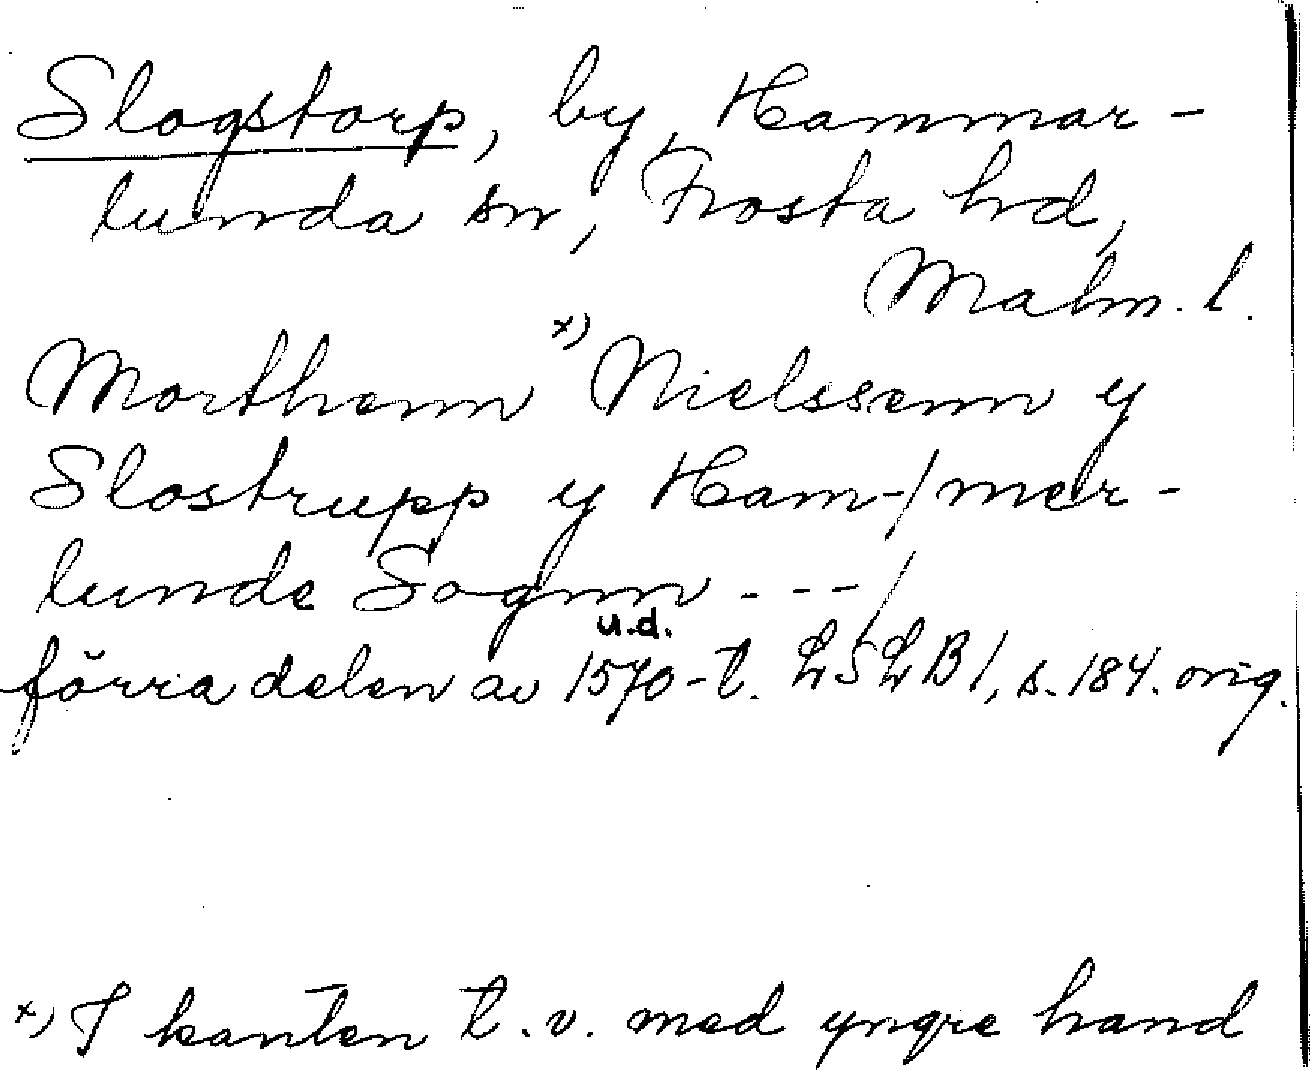 Slogstorp, by, Hammar-
lunda sn, Frosta hd,
Malm. l.
Morthenn x) Nielssenn y
Slostrupp y Ham-/mer-
lunde Sognn ---/
u.d.
förra delen av 1570-t. LSLB1, s. 184. orig.
x) I kanten t.v. med yngre hand